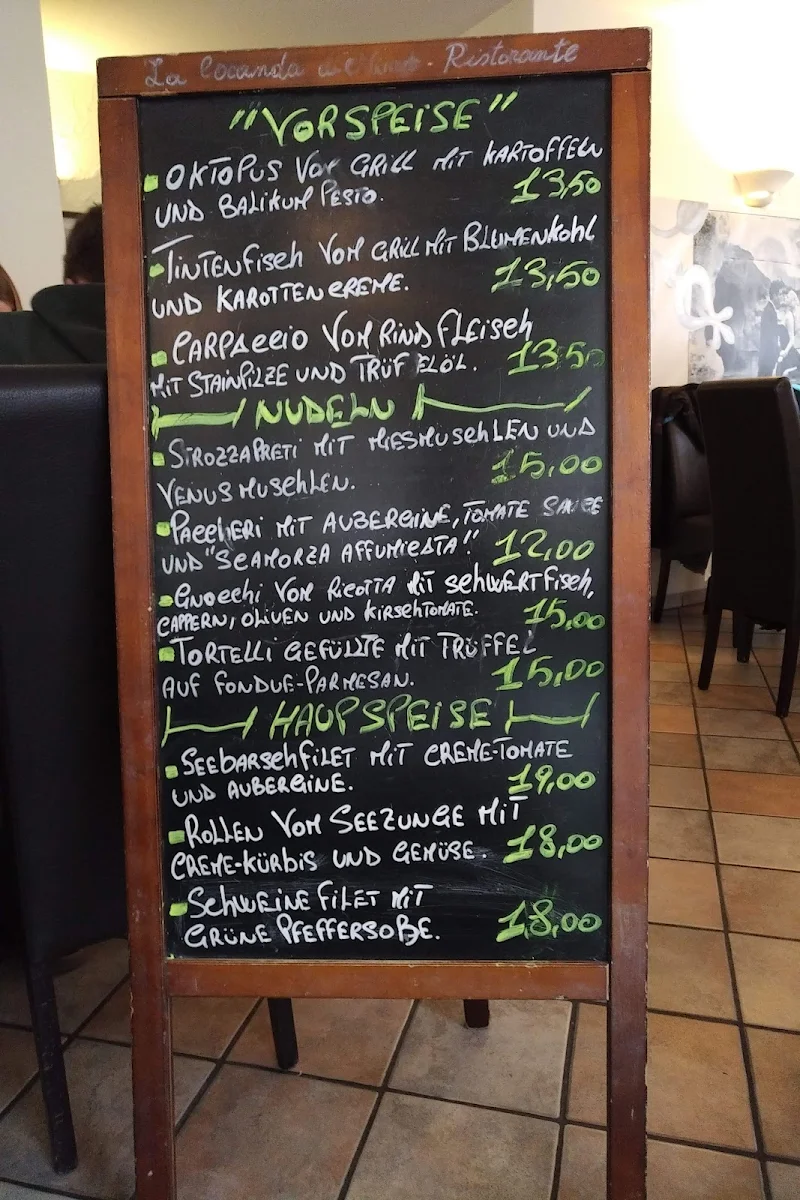 La Locanda Ristorante
"VORSPEISE"
OKTOPUS VOM GRILL MIT KARTOFFELN
UND BALIKUM PESTO. 13,50
TINTENFISCH VOM GRILL MIT BLUMENKOHL
UND KAROTTENCREME. 13,50
CARPACCIO VOM RINDFLEISCH
MIT STAINPILZE UND TRÜFELÖL. 13,50
NUDELN
STROZZAPRETI MIT MIESMUSCHLEN UND
VENUSMUSCHLEN. 15,00
PACCHERI MIT AUBERGINE, TOMATE SAUCE
UND "SCAMORZA AFFUMICATA" 12,00
GNOCCHI VOM RICOTTA MIT SCHWERTFISCH,
CAPPERN, OLIVEN UND KIRSCHTOMATE. 15,00
TORTELLI GEFÜLLTE MIT TRÜFFEL
AUF FONDUE-PARMESAN. 15,00
HAUPSPEISE
SEEBARSCHFILET MIT CREME-TOMATE
UND AUBERGINE. 19,00
ROLLEN VOM SEEZUNGE MIT
CREME-KÜRBIS UND GEMÜSE. 18,00
SCHWEINEFILET MIT
GRÜNE PFEFFERSOßE. 18,00